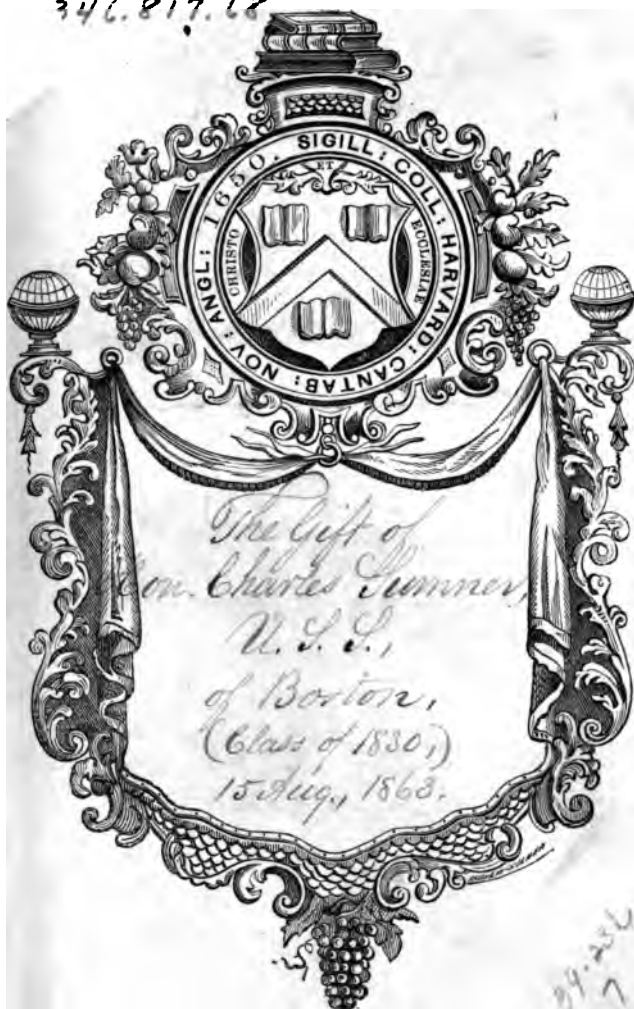 SIGILL: COLL: HARVARD: CANTAB: NOV: ANGL: 1650.
CHRISTO ET ECCLESIAE
The Gift of
Hon. Charles Sumner,
U.S.S.,
of Boston,
(Class of 1830,)
15 Aug., 1863.